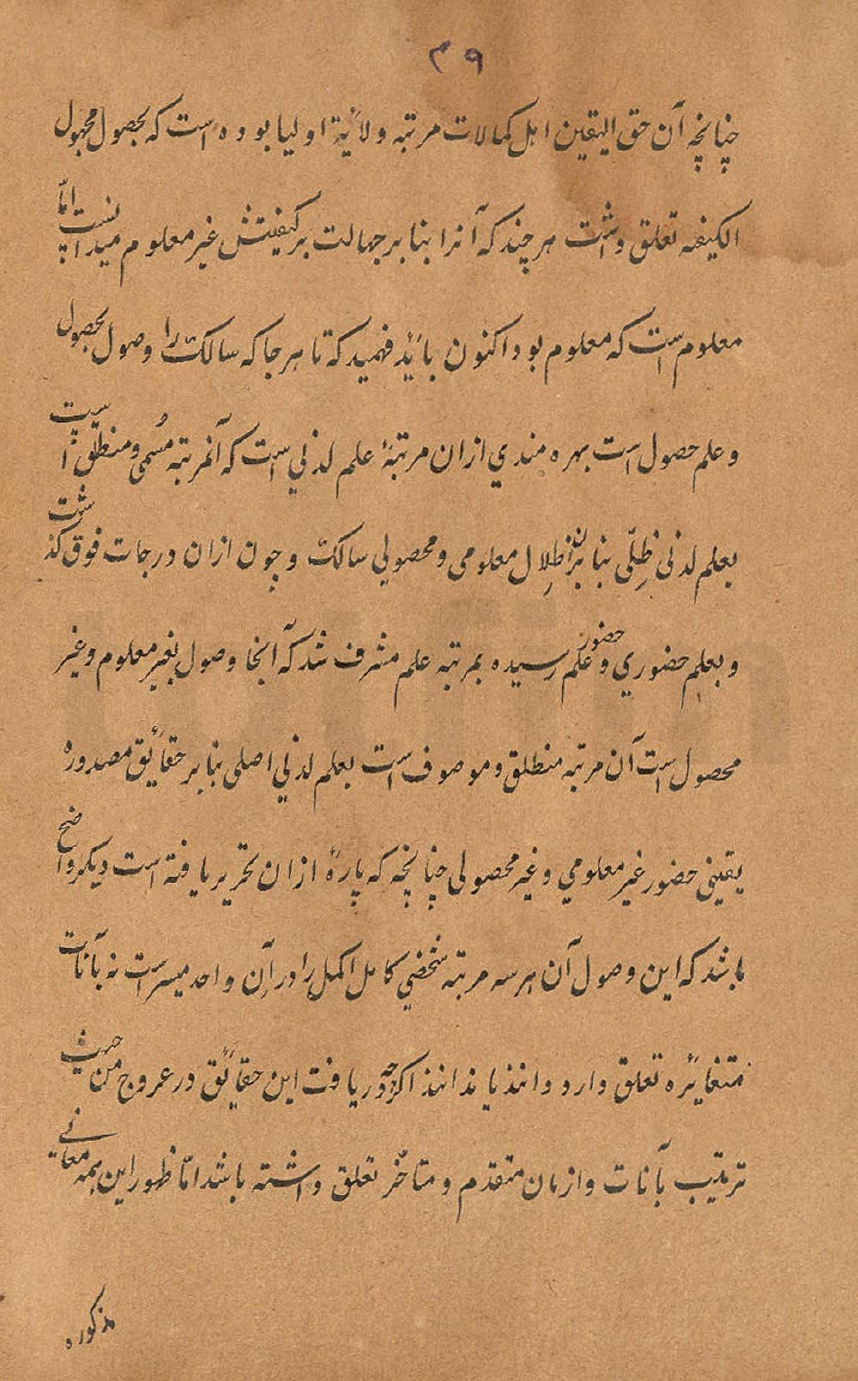 ۳۹
چنانچه آن حق الیقین اهل کمالات مرتبه ولائیة اولیا بوده است که بحصول مجهول
الکیفه تعلق داشت هرچند که آنرا بنا بر جهالت بر کیفیتش غیر معلوم میدانست امّا
معلوم است که معلوم بود اکنون بائید فهمید که تا هر جا که سالک را وصول بحصول
و علم حصول است بهره مندي ازان مرتبهٔ علم لدنی است که آنمرتبه مسمی و منطلق است
بعلم لدنی ظلّی بنا بران ظلال معلومی و محصولی سالک و چون ازان درجات فوق گذشت
و بعلم حضوري و علم حضور رسیده بمرتبه علم مشرف شد که آنجا وصول بغیر معلوم و غیر
محصول است آن مرتبه منطلق و موصوف است بعلم لدنی اصلی بنا بر حقائق مصدوره
یقینی حضور غیر معلومي و غیر محصولی چنانچه که پارهٔ ازان تحریر یافته است دیگر واضح
باشد که این وصول آن هر سه مرتبه شخصي کامل اکمل را در آن واحد میسر است نه بآنات
متغائره تعلق دارد دانند یا ندانند اگرچه دریافت این حقائق در عروج من حیث
ترتیب بآنات و ازمان متقدم و متاخّر تعلق داشته باشد امّا ظهور این همه معانی
مذکوره